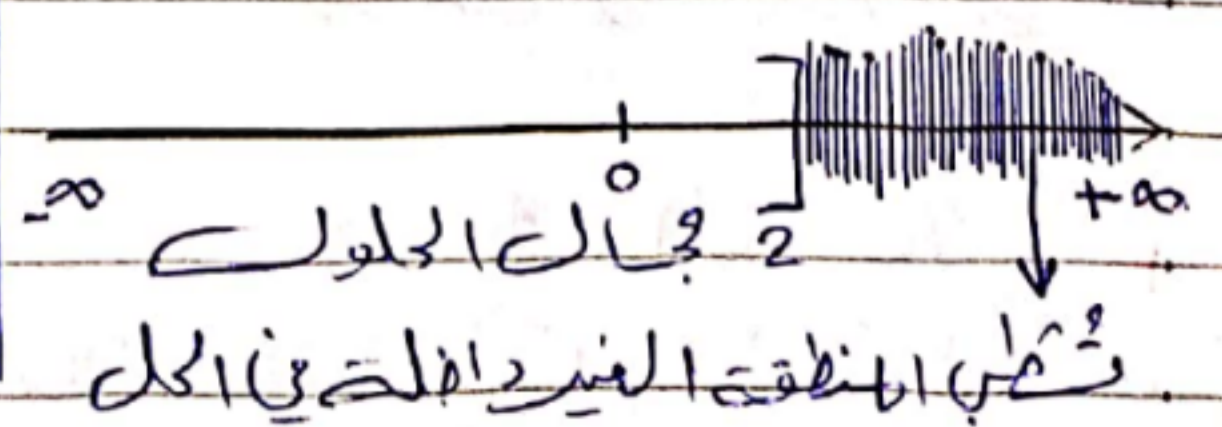 0
-∞ +∞
2 مجال الحلول
نشطب المنطقة الغير داخلة في الحل